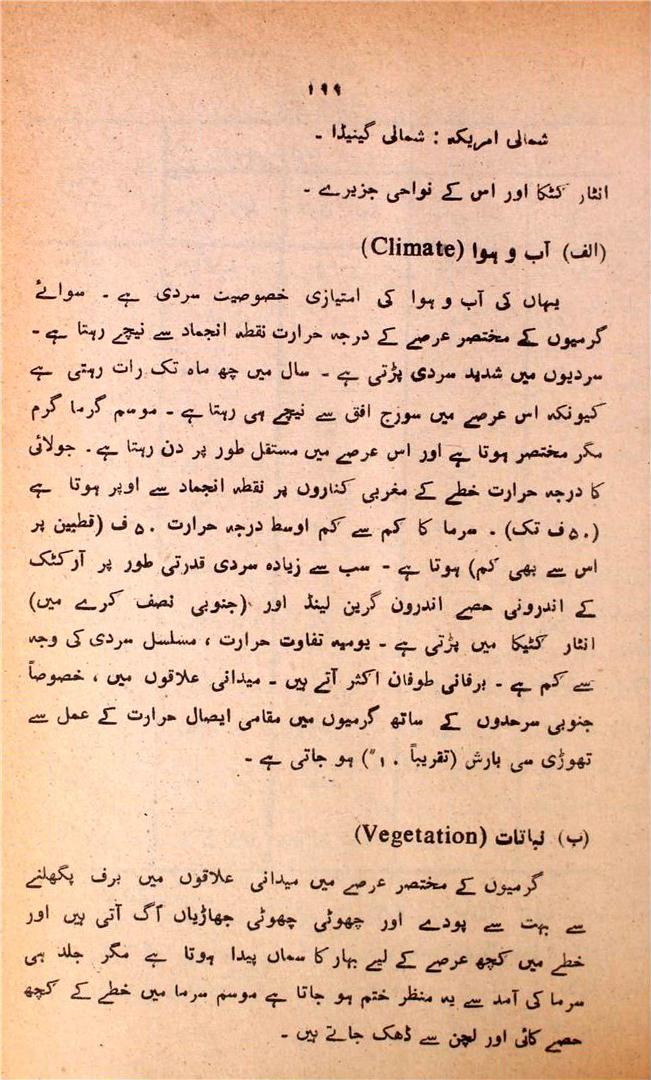 ۱۹۹
شمالی امریکہ : شمالی کینیڈا ۔
انٹار کٹکا اور اس کے نواحی جزیرے ۔
(الف) آب و ہوا (Climate)
یہاں کی آب و ہوا کی امتیازی خصوصیت سردی ہے ۔ سوائے
گرمیوں کے مختصر عرصے کے درجہ حرارت نقطہ انجماد سے نیچے رہتا ہے ۔
سردیوں میں شدید سردی پڑتی ہے ۔ سال میں چھ ماہ تک رات رہتی ہے
کیونکہ اس عرصے میں سورج افق سے نیچے ہی رہتا ہے ۔ موسم گرما گرم
مگر مختصر ہوتا ہے اور اس عرصے میں مستقل طور پر دن رہتا ہے ۔ جولائی
کا درجہ حرارت خطے کے مغربی کناروں پر نقطہ انجماد سے اوپر ہوتا ہے
(۵۰ ف تک) ۔ سرما کا کم سے کم اوسط درجہ حرارت ۵۰ ف (قطبین پر
اس سے بھی کم) ہوتا ہے ۔ سب سے زیادہ سردی قدرتی طور پر آرکٹک
کے اندرونی حصے اندرون گرین لینڈ اور (جنوبی نصف کرے میں)
انٹار کٹیکا میں پڑتی ہے ۔ یومیہ تفاوت حرارت ، مسلسل سردی کی وجہ
سے کم ہے ۔ برفانی طوفان اکثر آتے ہیں ۔ میدانی علاقوں میں ، خصوصاً
جنوبی سرحدوں کے ساتھ گرمیوں میں مقامی ایصال حرارت کے عمل سے
تھوڑی سی بارش (تقریباً ۱۰″) ہو جاتی ہے ۔
(ب) نباتات (Vegetation)
گرمیوں کے مختصر عرصے میں میدانی علاقوں میں برف پگھلنے
سے بہت سے پودے اور چھوٹی چھوٹی جھاڑیاں اُگ آتی ہیں اور
خطے میں کچھ عرصے کے لیے بہار کا سماں پیدا ہوتا ہے مگر جلد ہی
سرما کی آمد سے یہ منظر ختم ہو جاتا ہے موسم سرما میں خطے کے کچھ
حصے کائی اور لچن سے ڈھک جاتے ہیں ۔